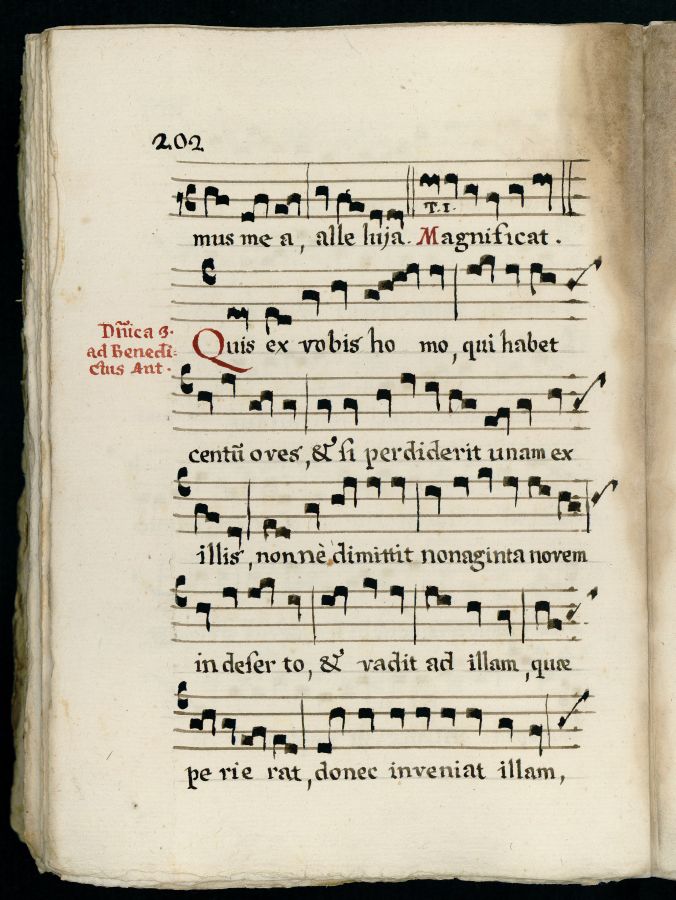 202
T. 1.
mus me a, alle luja. Magnificat.
Dñica 3.
ad Benedi-
ctus Ant.
Quis ex vobis ho mo, qui habet
centũ oves, & si perdiderit unam ex
illis, nonnè dimittit nonaginta novem
in deser to, & vadit ad illam, quæ
pe rie rat, donec inveniat illam,